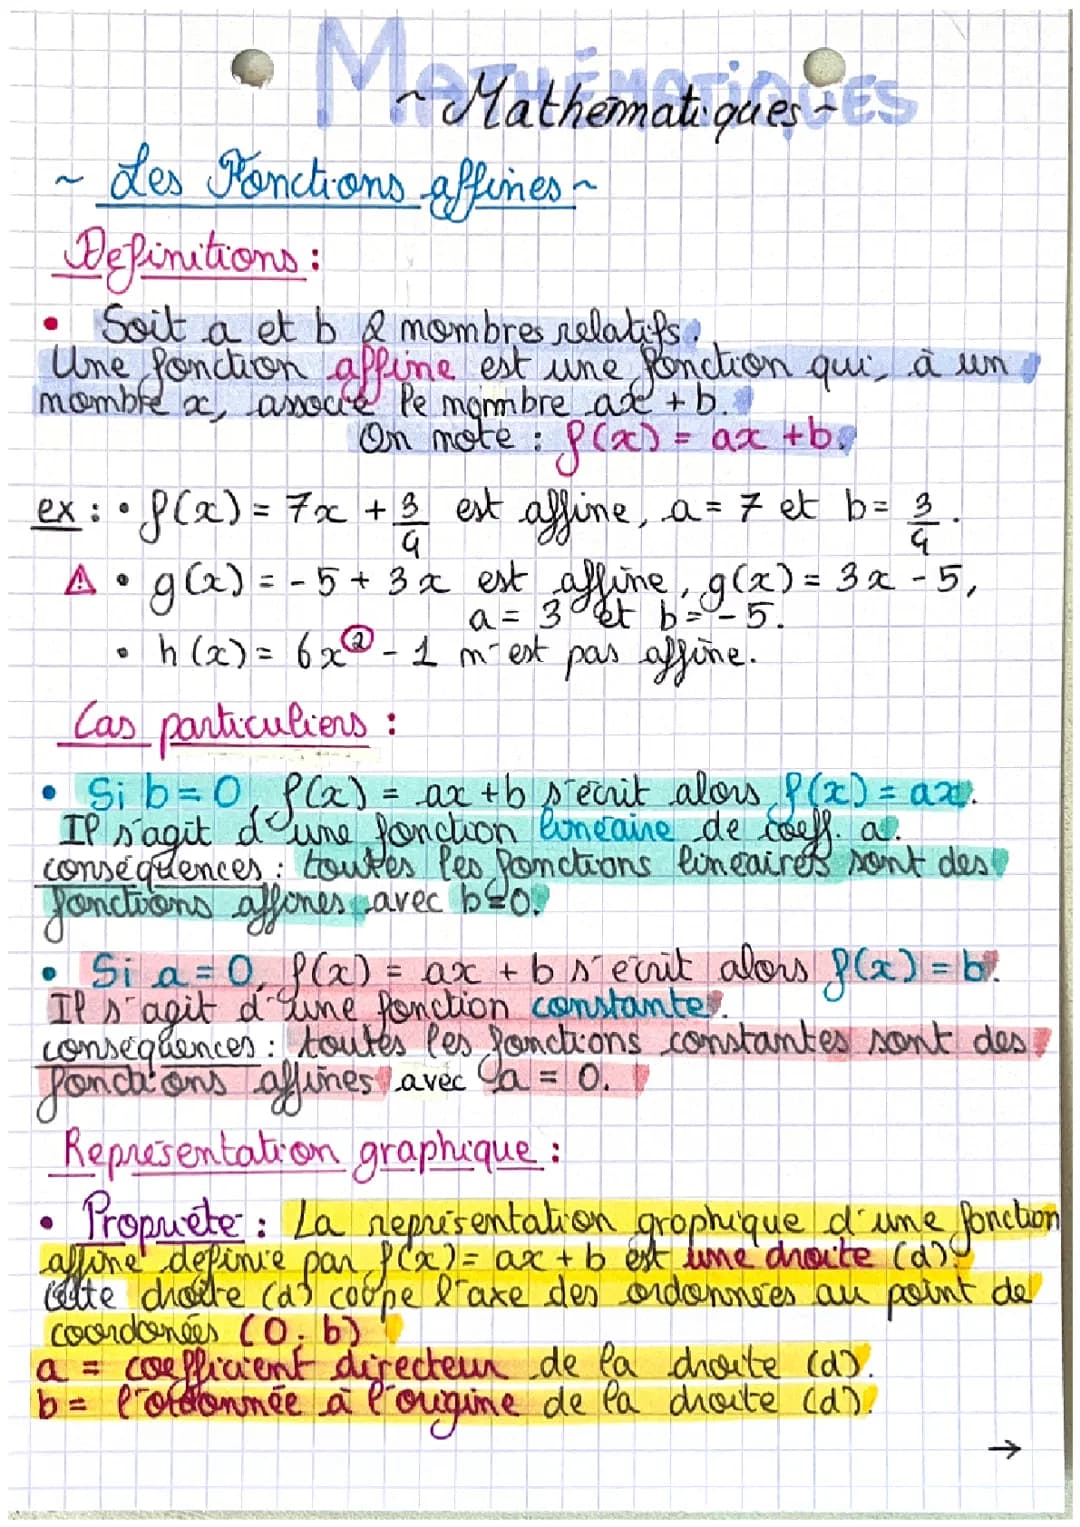 MATHÉMATIQUES
~ Mathématiques ~
~ Les Fonctions affines ~
Définitions :
• Soit a et b 2 nombres relatifs.
Une fonction affine est une fonction qui, à un
nombre x, associe le nombre ax + b.
On note : f(x) = ax + b.
ex : • f(x) = 7x + 3/4 est affine, a = 7 et b = 3/4.
⚠ • g(x) = - 5 + 3x est affine, g(x) = 3x - 5,
a = 3 et b = - 5.
• h(x) = 6x² - 1 n'est pas affine.
Cas particuliers :
• Si b = 0, f(x) = ax + b s'écrit alors f(x) = ax.
Il s'agit d'une fonction linéaire de coeff. a.
conséquences : toutes les fonctions linéaires sont des
fonctions affines avec b=0.
• Si a = 0, f(x) = ax + b s'écrit alors f(x) = b.
Il s'agit d'une fonction constante.
conséquences : toutes les fonctions constantes sont des
fonctions affines avec a = 0.
Représentation graphique :
• Propriété : La représentation graphique d'une fonction
affine définie par f(x) = ax + b est une droite (d).
Cette droite (d) coupe l'axe des ordonnées au point de
coordonées (0 ; b)
a = coefficient directeur de la droite (d).
b = l'ordonnée à l'origine de la droite (d).
→